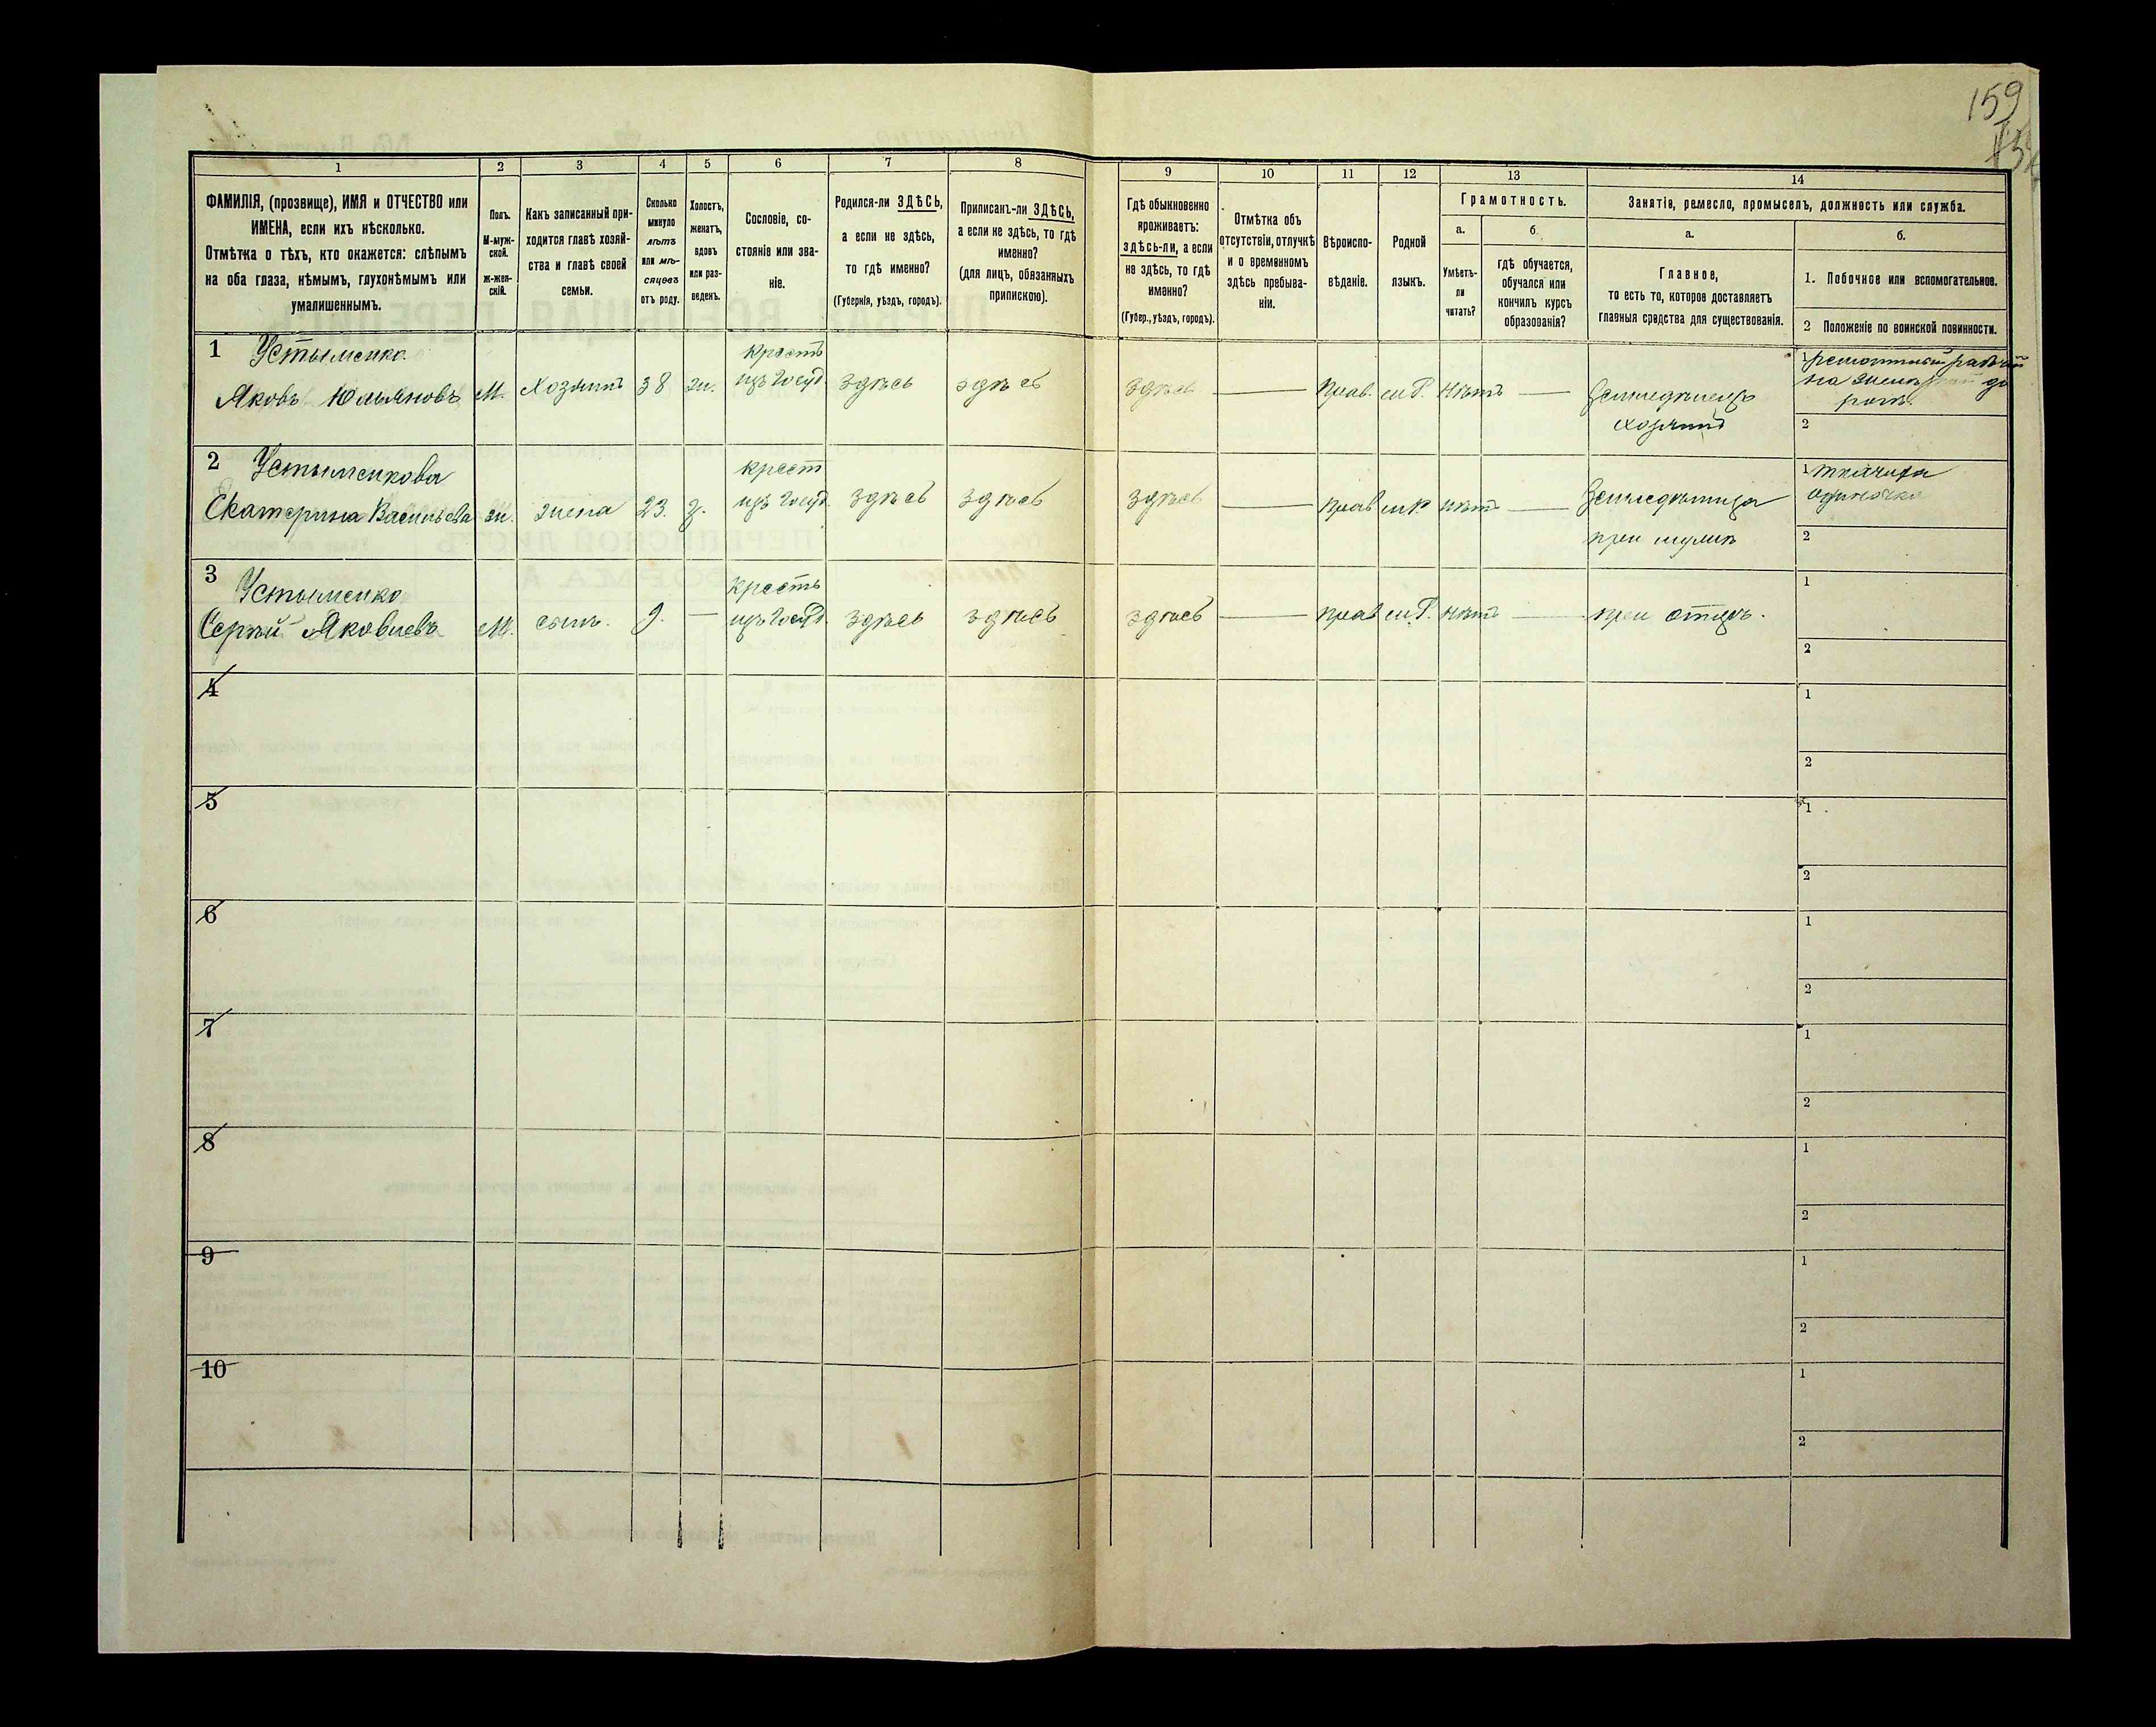 159
1
2
3
4
5
6
7
8
9
10
11
12
13
14
ФАМИЛІЯ, (прозвище), ИМЯ и ОТЧЕСТВО или
ИМЕНА, если ихъ нѣсколько.
Отмѣтка о тѣхъ, кто окажется: слѣпымъ
на оба глаза, нѣмымъ, глухонѣмымъ или
умалишеннымъ.
Полъ.
М-муж-
ской.
ж-жен-
скій.
Какъ записанный при-
ходится главѣ хозяй-
ства и главѣ своей
семьи.
Сколько
минуло
лѣтъ
или мѣ-
сяцевъ
отъ роду.
Холостъ,
женатъ,
вдовъ
или раз-
веденъ.
Сословіе, со-
стояніе или зва-
ніе.
Родился-ли ЗДѢСЬ,
а если не здѣсь,
то гдѣ именно?
(Губернія, уѣздъ, городъ).
Приписанъ-ли ЗДѢСЬ,
а если не здѣсь, то гдѣ
именно?
(для лицъ, обязанныхъ
припискою).
Гдѣ обыкновенно
проживаетъ:
здѣсь-ли, а если
не здѣсь, то гдѣ
именно?
(Губер., уѣздъ, городъ).
Отмѣтка объ
отсутствіи, отлучкѣ
и о временномъ
здѣсь пребыва-
ніи.
Вѣроиспо-
вѣданіе.
Родной
языкъ.
Грамотность.
а.
Умѣетъ-
ли
читать?
б.
гдѣ обучается,
обучался или
кончилъ курсъ
образованія?
Занятія, ремесло, промыселъ, должность или служба.
а.
Главное,
то есть то, которое доставляетъ
главныя средства для существованія.
б.
1. Побочное или вспомогательное.
2 Положеніе по воинской повинности.
1 Устименко
Яковъ Юльяновъ
М.
Хозяинъ
38
ж.
крестъ
изъ госуд.
здѣсь
здѣсь
здѣсь
—
прав.
м.Р.
нѣтъ
—
Земледѣлецъ
хозяинъ
1 ремонтный рабочій
на
2
2 Устименкова
Екатерина Васильева
ж.
жена
23.
з.
крест
изъ госуд.
здѣсь
здѣсь
здѣсь
—
прав
м.Р.
нѣтъ
—
при мужѣ
1 ткачиха
одиночка
2
3 Устименко
Сергѣй Яковлевъ
М.
сынъ.
9.
—
крестъ
изъ госуд.
здѣсь
здѣсь
здѣсь
—
прав
м.Р.
нѣтъ
—
при отцѣ.
1
2
4
1
2
5
1
2
6
1
2
7
1
2
8
1
2
9
1
2
10
1
2